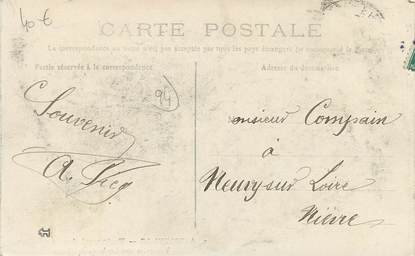 40 €
CARTE POSTALE
La correspondance au verso n'est pas acceptée par tous les pays étrangers (se renseigner à la Poste)
Partie réservée à la correspondance
Adresse du destinataire
94
Souvenir
A.
monsieur Compain
à
Neuvy sur Loire
Nièvre